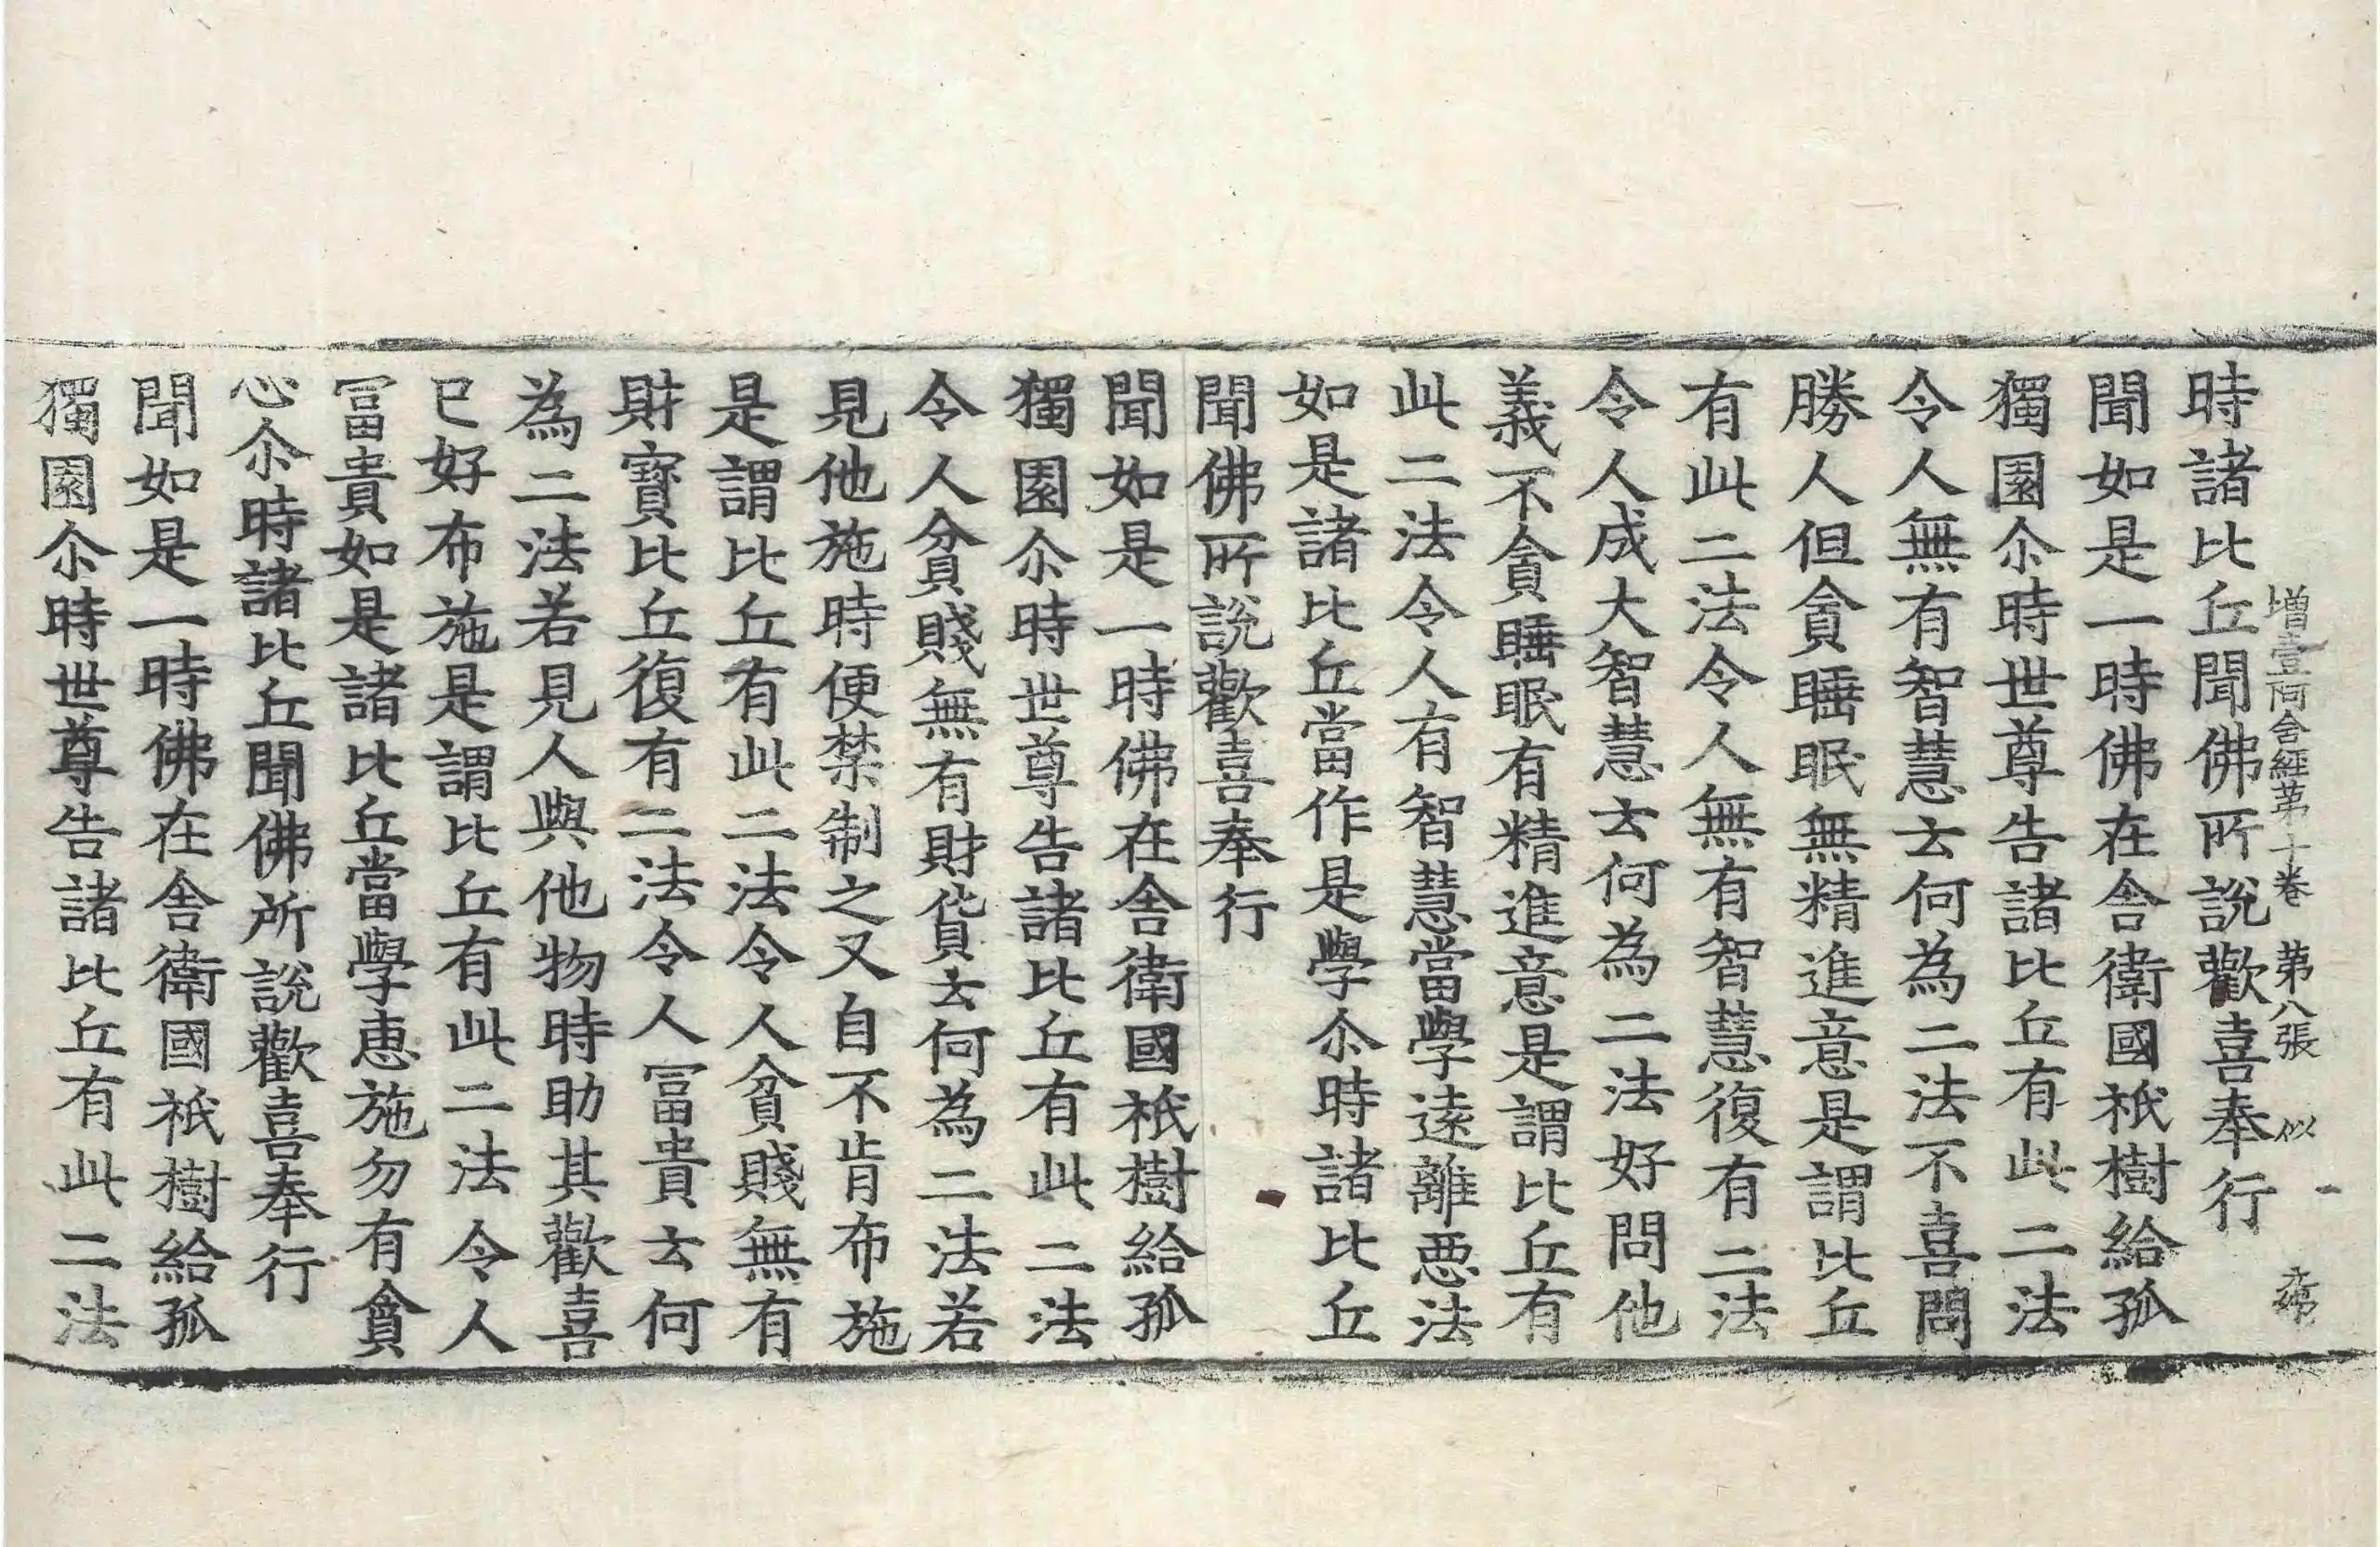 增壹阿含經第十卷 第八張 似
時諸比丘聞佛所說歡喜奉行
聞如是一時佛在舍衛國祇樹給孤
獨園尒時世尊告諸比丘有此二法
令人無有智慧云何為二法不喜問
勝人但貪睡眠無精進意是謂比丘
有此二法令人無有智慧復有二法
令人成大智慧云何為二法好問他
義不貪睡眠有精進意是謂比丘有
此二法令人有智慧當學遠離惡法
如是諸比丘當作是學尒時諸比丘
聞佛所說歡喜奉行
聞如是一時佛在舍衛國祇樹給孤
獨園尒時世尊告諸比丘有此二法
令人貧賤無有財貨云何為二法若
見他施時便禁制之又自不肯布施
是謂比丘有此二法令人貧賤無有
財寶比丘復有二法令人冨貴云何
為二法若見人與他物時助其歡喜
已好布施是謂比丘有此二法令人
冨貴如是諸比丘當學惠施勿有貪
心尒時諸比丘聞佛所說歡喜奉行
聞如是一時佛在舍衛國祇樹給孤
獨園尒時世尊告諸比丘有此二法